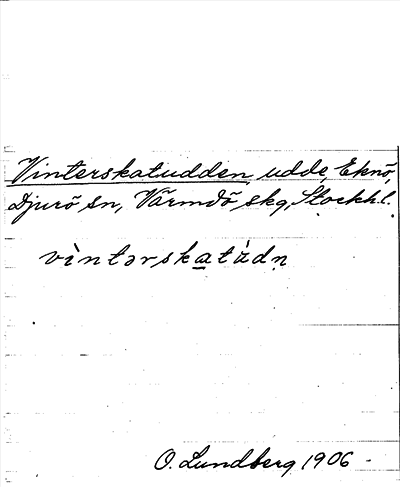 Vinterskatudden, udde, Eknö,
Djurö sn, Värmdö skg, Stockh.l.
vìntərskatùdn̥
O. Lundberg 1906